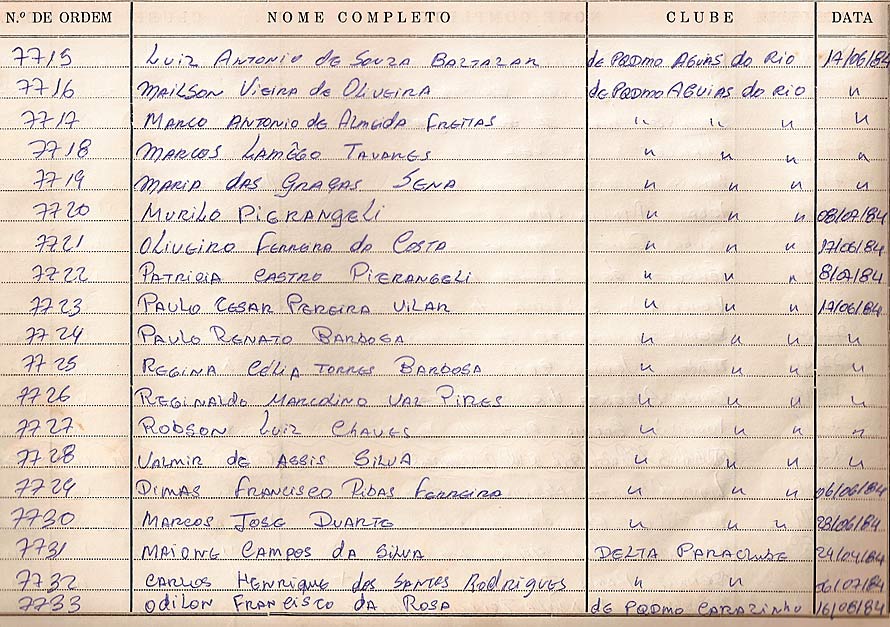 N.º DE ORDEM NOME COMPLETO CLUBE DATA
7715 Luiz Antonio de Souza Baltazar de PQDmo Aguias do Rio 17/06/84
7716 Mailson Vieira de Oliveira de PQDmo Aguias do Rio "
7717 Marco Antonio de Almeida Freitas " " " "
7718 Marcos Lamêgo Tavares " " " "
7719 Maria das Graças Sena " " " "
7720 Murilo Pierangeli " " " 08/07/84
7721 Oliveiro Ferreira da Costa " " " 17/06/84
7722 Patricia Castro Pierangeli " " " 8/07/84
7723 Paulo Cesar Pereira Vilar " " " 17/06/84
7724 Paulo Renato Barbosa " " " "
7725 Regina Célia Torres Barbosa " " " "
7726 Reginaldo Marcolino Val Pires " " " "
7727 Robson Luiz Chaves " " " "
7728 Valmir de Assis Silva " " " "
7729 Dimas Francisco Ribas Ferreira " " " 06/06/84
7730 Marcos Jose Duarte " " " 28/06/84
7731 Maione Campos da Silva Delta Paraclube 24/04/84
7732 Carlos Henrique dos Santos Rodrigues " " 06/07/84
7733 Odilon Francisco da Rosa de PQDmo Carazinho 16/08/84